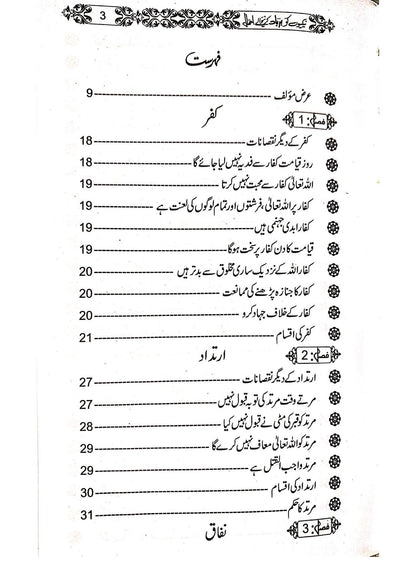 3 نیکیوں کو برباد کرنے والے اعمال
فہرست
عرض مؤلف 9
فصل: 1 کفر
کفر کے دیگر نقصانات 18
روز قیامت کفار سے فدیہ نہیں لیا جائے گا 18
اللہ تعالیٰ کفار سے محبت نہیں کرتا 19
کفار پر اللہ تعالیٰ، فرشتوں اور تمام لوگوں کی لعنت ہے 19
کفار ابدی جہنمی ہیں 19
قیامت کا دن کفار پر سخت ہوگا 19
کفار اللہ کے نزدیک ساری مخلوق سے بدتر ہیں 20
کفار کا جنازہ پڑھنے کی ممانعت 20
کفار کے خلاف جہاد کرو 20
کفر کی اقسام 21
فصل: 2 ارتداد
ارتداد کے دیگر نقصانات 27
مرتے وقت مرتد کی توبہ قبول نہیں 27
مرتد کو قبر کی مٹی نے قبول نہیں کیا 28
مرتد کو اللہ تعالیٰ معاف نہیں کرے گا 29
مرتد واجب القتل ہے 29
ارتداد کی اقسام 30
مرتد کا حکم 31
فصل: 3 نفاق